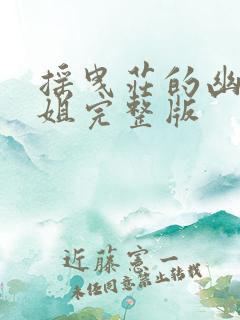 摇曳莊的幽
姐完整版
近藤憲一
未经同意禁止转载